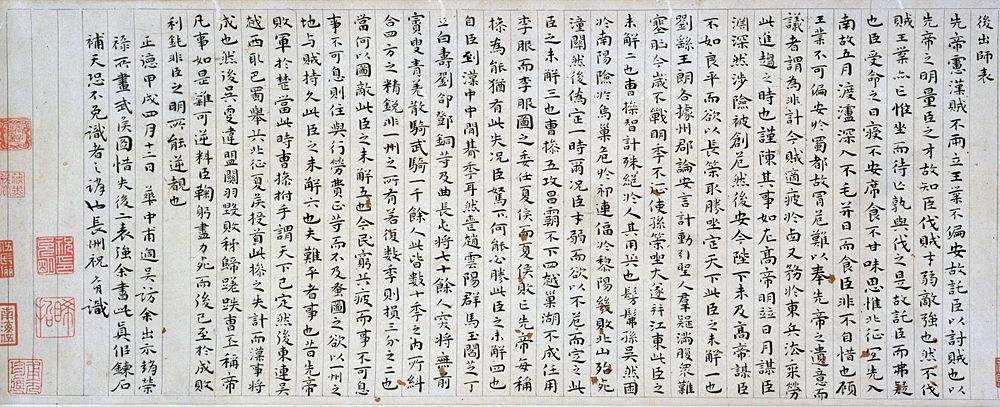 後出師表
先帝慮漢賊不兩立王業不偏安故託臣以討賊也以
先帝之明量臣之才故知臣伐賊才弱敵強也然不伐
賊王業亦亡惟坐而待亡孰與伐之是故託臣而弗疑
也臣受命之日寢不安席食不甘味思惟北征宜先入
南故五月渡瀘深入不毛并日而食臣非不自惜也顧
王業不可偏安於蜀都故冒危難以奉先帝之遺意而
議者謂為非計今賊適疲於西又務於東兵法乘勞
此進趨之時也謹陳其事如左高帝明並日月謀臣
淵深然涉險被創危然後安今陛下未及高帝謀臣
不如良平而欲以長策取勝坐定天下此臣之未解一也
劉繇王朗各據州郡論安言計動引聖人羣疑滿腹眾難
塞胸今歲不戰明年不征使孫策坐大遂并江東此臣之
未解二也曹操智計殊絕於人其用兵也髣髴孫吳然困
於南陽險於烏巢危於祁連偪於黎陽幾敗北山殆死
潼關然後偽定一時爾況臣才弱而欲以不危而定之此
臣之未解三也曹操五攻昌霸不下四越巢湖不成任用
李服而李服圖之委任夏侯而夏侯敗亡先帝每稱
操為能猶有此失況臣駑下何能必勝此臣之未解四也
自臣到漢中中間朞年耳然喪趙雲陽群馬玉閻芝丁
立白壽劉郃鄧銅等及曲長屯將七十餘人突將無前
賨叟青羌散騎武騎一千餘人此皆數十年之內所糾
合四方之精銳非一州之所有若復數年則損三分之二也
當何以圖敵此臣之未解五也今民窮兵疲而事不可息
事不可息則住與行勞費正等而不及蚤圖之欲以一州之
地与賊持久此臣之未解六也夫難平者事也昔先帝
敗軍於楚當此時曹操拊手謂天下已定然後東連吳
越西取巴蜀舉兵北征夏侯授首此操之失計而漢事將
成也然後吳更違盟關羽毀敗秭歸蹉跌曹丕稱帝
凡事如是難可逆料臣鞠躬盡力死而後已至於成敗
利鈍非臣之明所能逆覩也
正德甲戌四月十二日華中甫過吳訪余出示趙榮
祿所畫武侯圖惜失後二表強余書此真佀鍊石
補天恐不免識者之誚也長洲祝 識